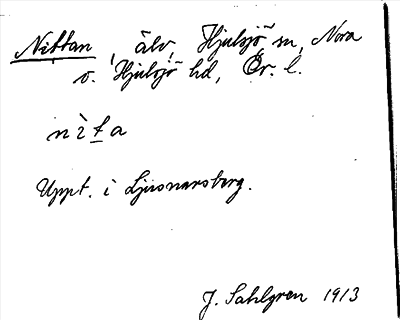 Nittan, älv, Hjulsjö sn, Nora
o. Hjulsjö hd, Ör. l.
nìṯa
Uppt. i Ljusnarsberg.
J. Sahlgren 1913